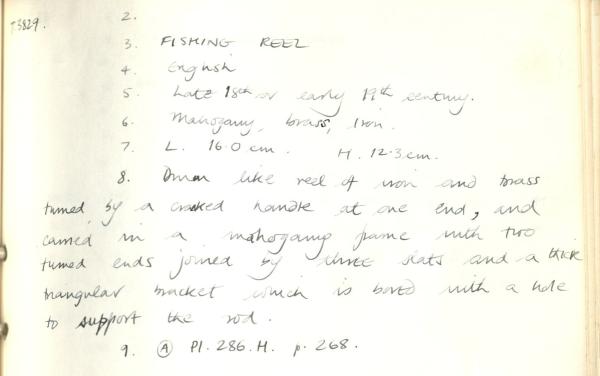 T3829. 2.
3. FISHING REEL
4. English
5. Late 18th or early 19th century.
6. Mahogany, brass, Iron.
7. L. 16.0 cm. H. 12.3 cm.
8. Drum like reel of iron and brass
turned by a cranked handle at one end, and
carried in a mahogany frame with two
turned ends joined by three slats and a thick
triangular bracket which is bored with a hole
to support the rod.
9. A Pl. 286. H. p. 268.